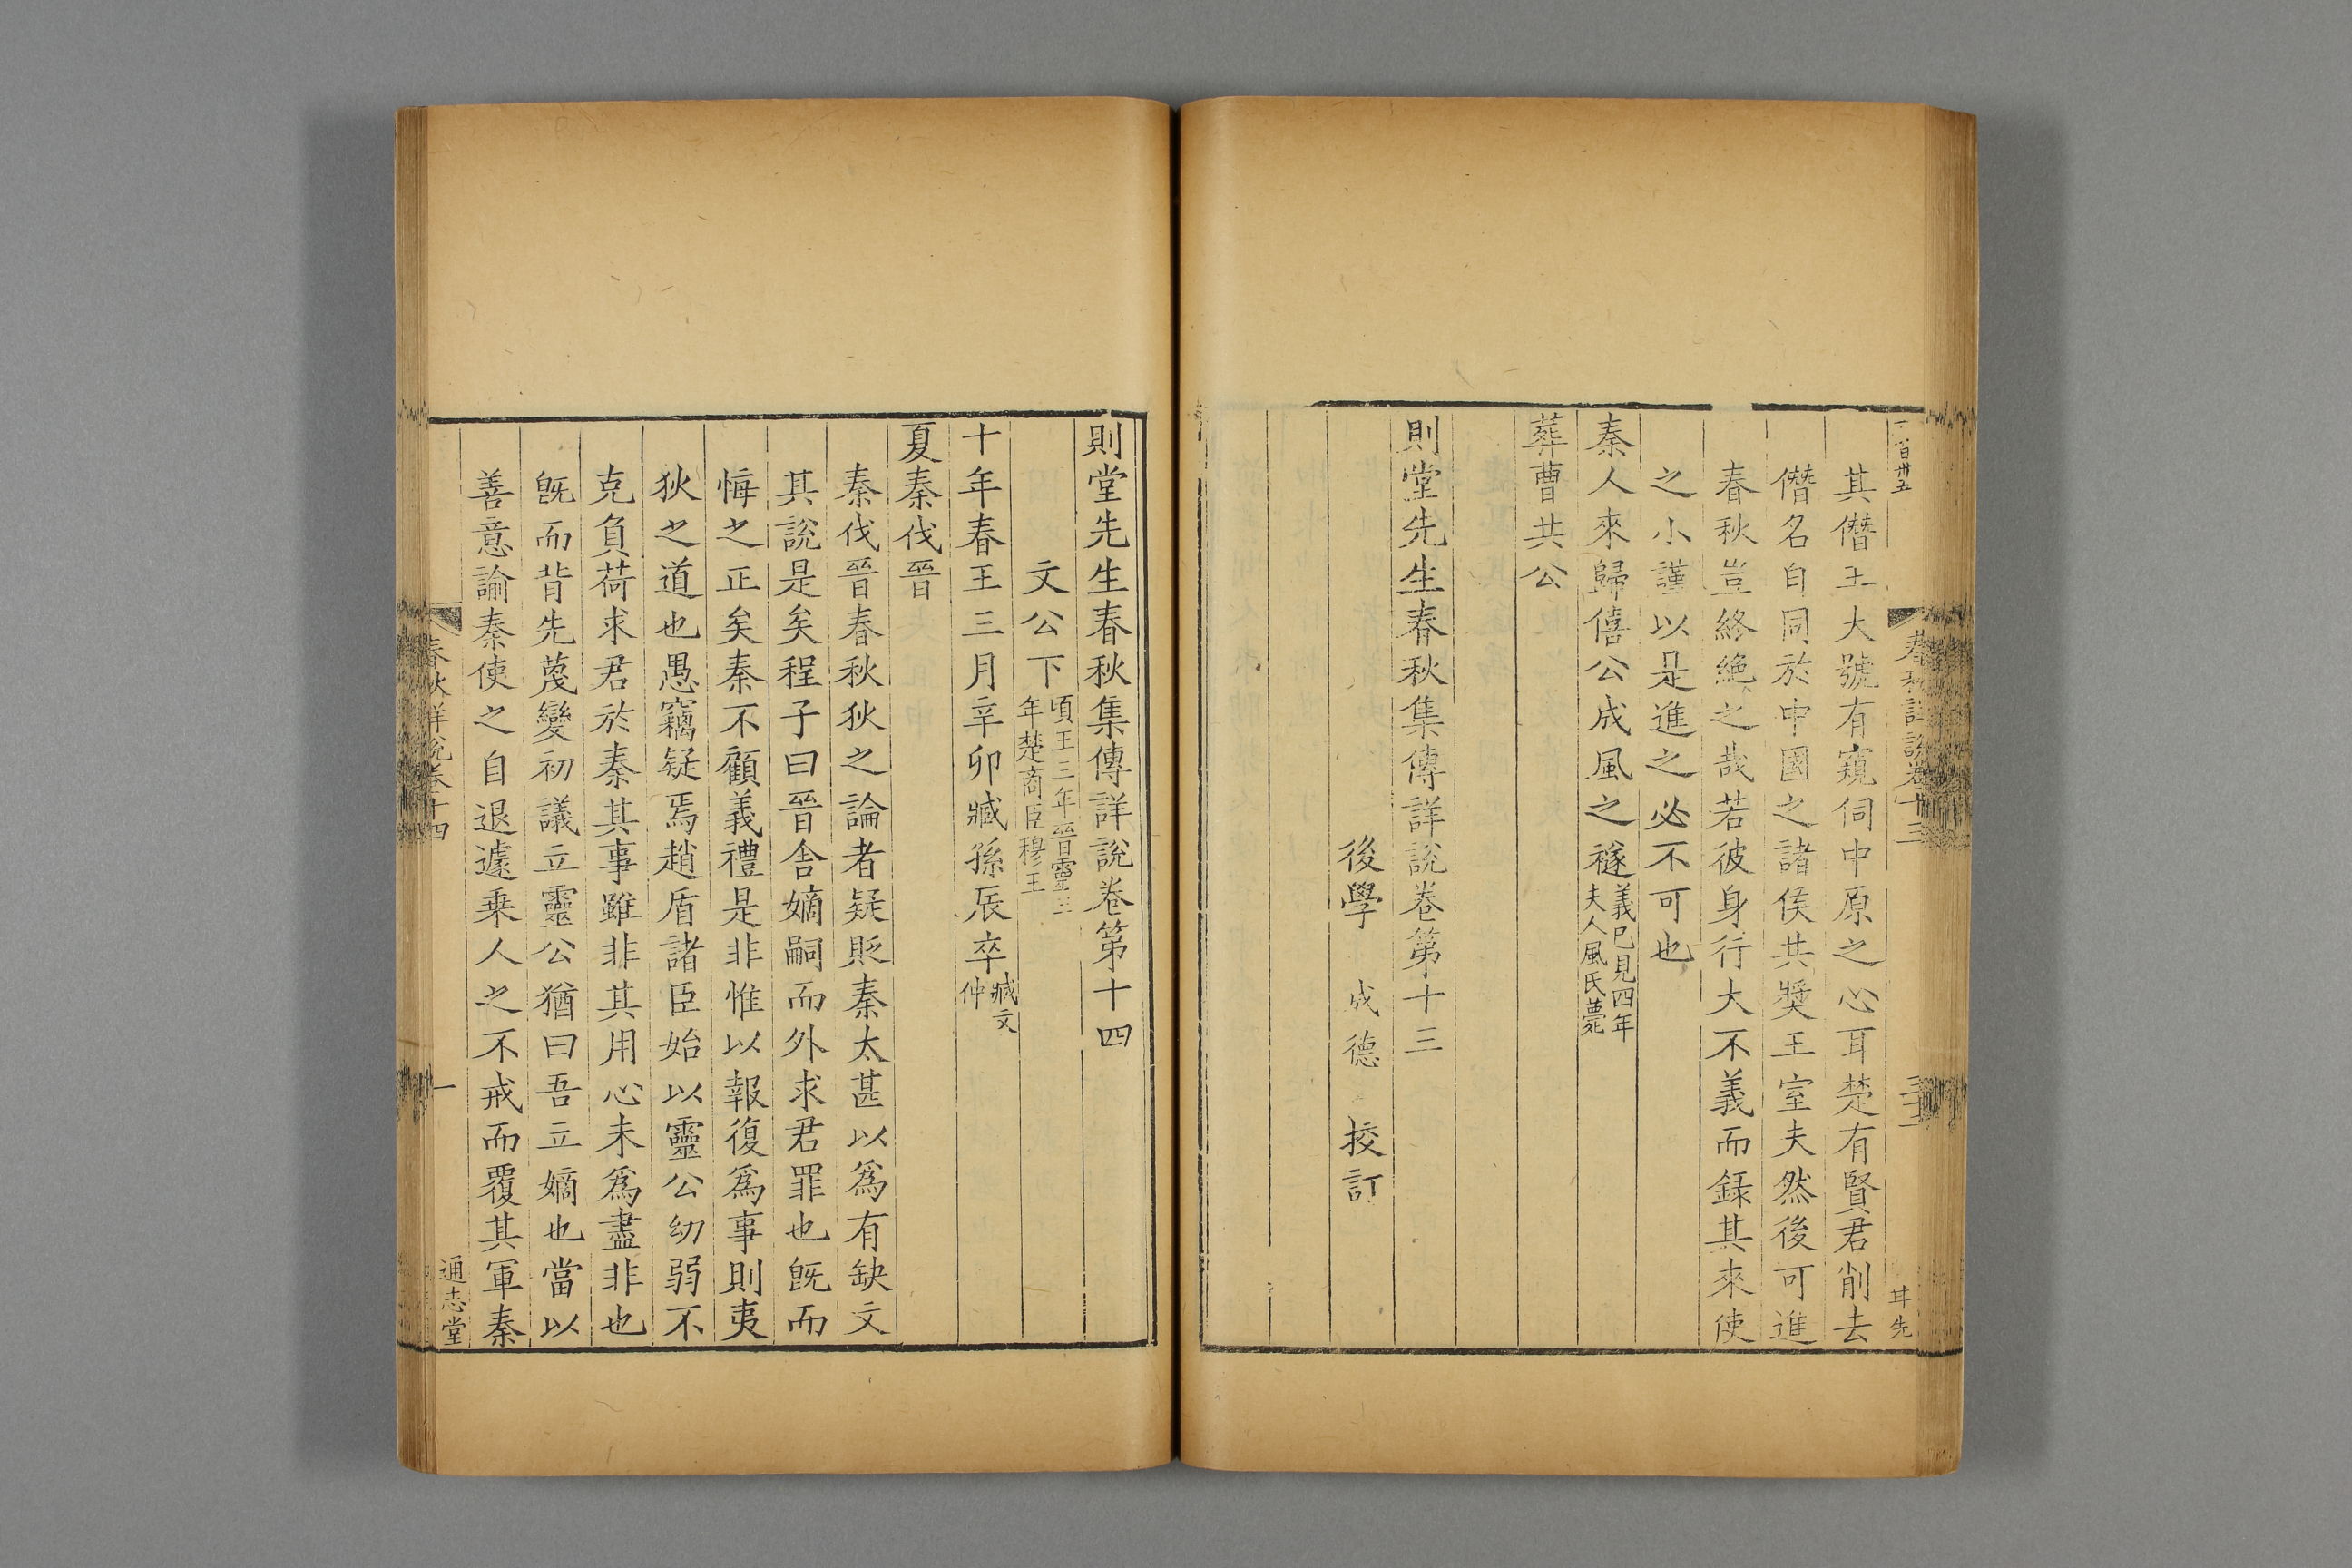 其僭王大號有窺伺中原之心耳楚有賢君削去
僭名自同於中國之諸侯共獎王室夫然後可進
春秋豈終絶之哉若彼身行大不義而録其來使
之小謹以是進之必不可也
秦人來歸僖公成風之襚義已見四年夫人風氏薨
葬曹共公
則堂先生春秋集傳詳說卷第十三
後學 成德 挍訂
春秋詳說卷十三
則堂先生春秋集傳詳說卷第十四
文公下頃王三年晉靈三年楚商臣穆王
十年春王三月辛卯臧孫辰卒臧文仲
夏秦伐晉
秦伐晉春秋狄之論者疑貶秦太甚以爲有缺文
其說是矣程子曰晉舍嫡嗣而外求君罪也旣而
悔之正矣秦不顧義禮是非惟以報復爲事則夷
狄之道也愚竊疑焉趙盾諸臣始以靈公幼弱不
克負荷求君於秦其事雖非其用心未爲盡非也
旣而背先蔑變初議立靈公猶曰吾立嫡也當以
善意諭秦使之自退遽乗人之不戒而覆其軍秦
春秋詳說卷十四
一
通志堂